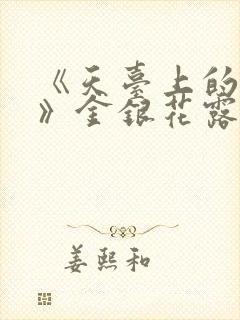 《天臺上的
》金銀花露
姜熙和